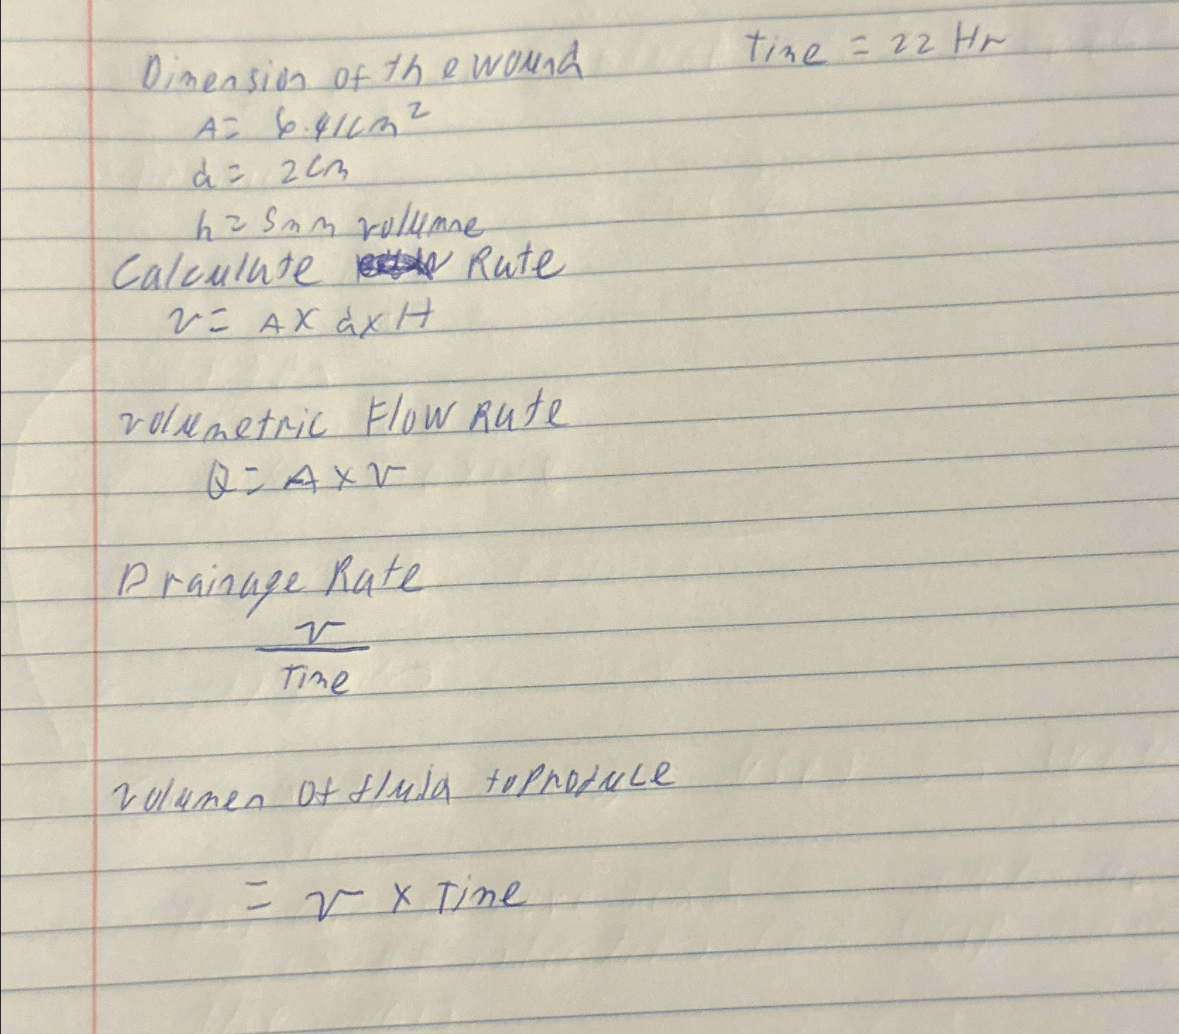 Time = 22 Hr
Dimension of the wound
A = 6.41cm²
d = 2cm
h = 5mm volumne
Calculate Rate
v = A x d x H
volumetric Flow Rate
Q = A x v
Drainage Rate
v
Time
volumen of fluid to produce
= v x Time